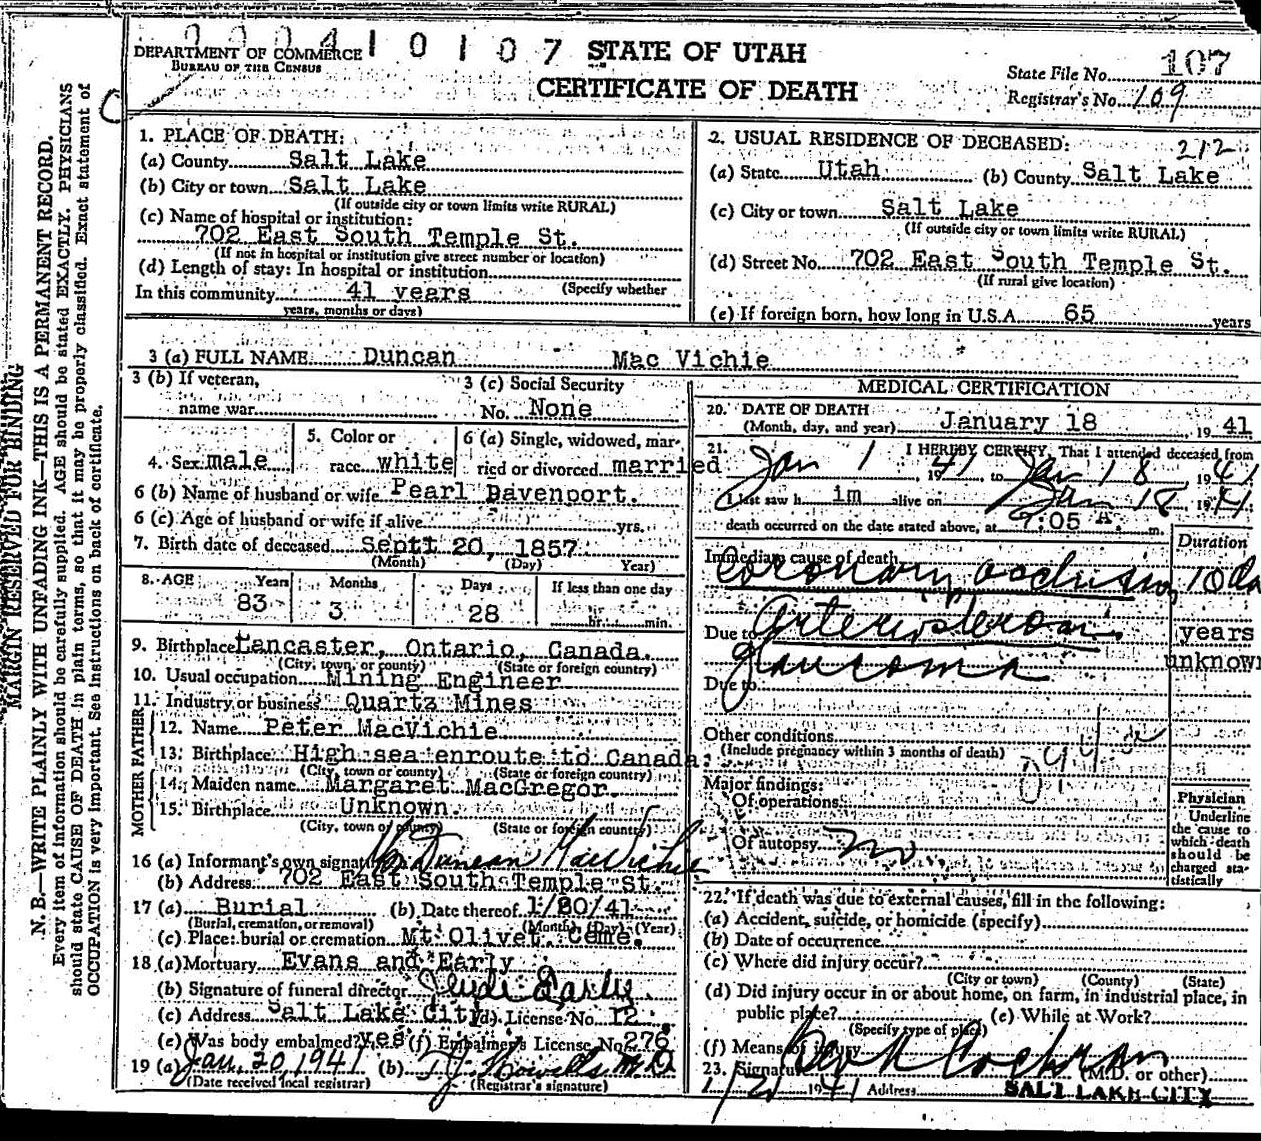 00041 0 1 0 7
STATE OF UTAH
CERTIFICATE OF DEATH
DEPARTMENT OF COMMERCE
BUREAU OF THE CENSUS
State File No. 107
Registrar's No. 109
MARGIN RESERVED FOR BINDING
N. B.—WRITE PLAINLY WITH UNFADING INK—THIS IS A PERMANENT RECORD.
Every item of information should be carefully supplied. AGE should be stated EXACTLY. PHYSICIANS
should state CAUSE OF DEATH in plain terms, so that it may be properly classified. Exact statement of
OCCUPATION is very important. See instructions on back of certificate.
1. PLACE OF DEATH:
(a) County Salt Lake
(b) City or town Salt Lake
(If outside city or town limits write RURAL)
(c) Name of hospital or institution:
702 East South Temple St.
(If not in hospital or institution give street number or location)
(d) Length of stay: In hospital or institution
In this community 41 years (Specify whether
years, months or days)
2. USUAL RESIDENCE OF DECEASED:
212
(a) State Utah (b) County Salt Lake
(c) City or town Salt Lake
(If outside city or town limits write RURAL)
(d) Street No. 702 East South Temple St.
(If rural give location)
(e) If foreign born, how long in U.S.A. 65 years
3 (a) FULL NAME Duncan Mac Vichie
3 (b) If veteran,
name war
3 (c) Social Security
No. None
4. Sex male
5. Color or
race white
6 (a) Single, widowed, mar-
ried or divorced married
6 (b) Name of husband or wife Pearl Davenport.
6 (c) Age of husband or wife if alive yrs.
7. Birth date of deceased Septt 20, 1857
(Month) (Day) Year)
8. AGE Years Months Days If less than one day
83 3 28 hr. min.
9. Birthplace Lancaster, Ontario, Canada.
(City, town, or county) (State or foreign country)
10. Usual occupation Mining Engineer
11. Industry or business Quartz Mines
FATHER
12. Name Peter MacVichie
13. Birthplace High sea enroute to Canada.
(City, town or county) (State or foreign country)
MOTHER
14. Maiden name Margaret MacGregor.
15. Birthplace Unknown.
(City, town or county) (State or foreign country)
16 (a) Informant's own signature Duncan MacVichie
(b) Address 702 East South Temple St.
17 (a) Burial (b) Date thereof 1/20/41
(Burial, cremation, or removal) (Month) (Day) (Year)
(c) Place: burial or cremation Mt Olivet Ceme.
18 (a) Mortuary Evans and Early
(b) Signature of funeral director
(c) Address Salt Lake City (d) License No. 12
(e) Was body embalmed? Yes (f) Embalmer's License No. 276
19 (a) Jan. 20, 1941 (b) T. J. Howells M D
(Date received local registrar) (Registrar's signature)
MEDICAL CERTIFICATION
20. DATE OF DEATH
(Month, day, and year) January 18 1941
21. I HEREBY CERTIFY, That I attended deceased from
Jan 1 1941 to Jan 18 1941
I last saw h im alive on Jan 18 1941
death occurred on the date stated above, at 7:05 A. m.
Duration
Immediate cause of death
Coronary occlusion 10 da
Due to Arteriosclerosis years
glaucoma unknown
Due to
Other conditions
(Include pregnancy within 3 months of death)
Major findings:
Of operations
Of autopsy no
Physician
Underline
the cause to
which death
should be
charged sta-
tistically
22. If death was due to external causes, fill in the following:
(a) Accident, suicide, or homicide (specify)
(b) Date of occurrence
(c) Where did injury occur?
(City or town) (County) (State)
(d) Did injury occur in or about home, on farm, in industrial place, in
public place? (e) While at Work?
(Specify type of place)
(f) Means of injury
23. Signature Cochran (M.D. or other)
1/21 1941 Address SALT LAKE CITY